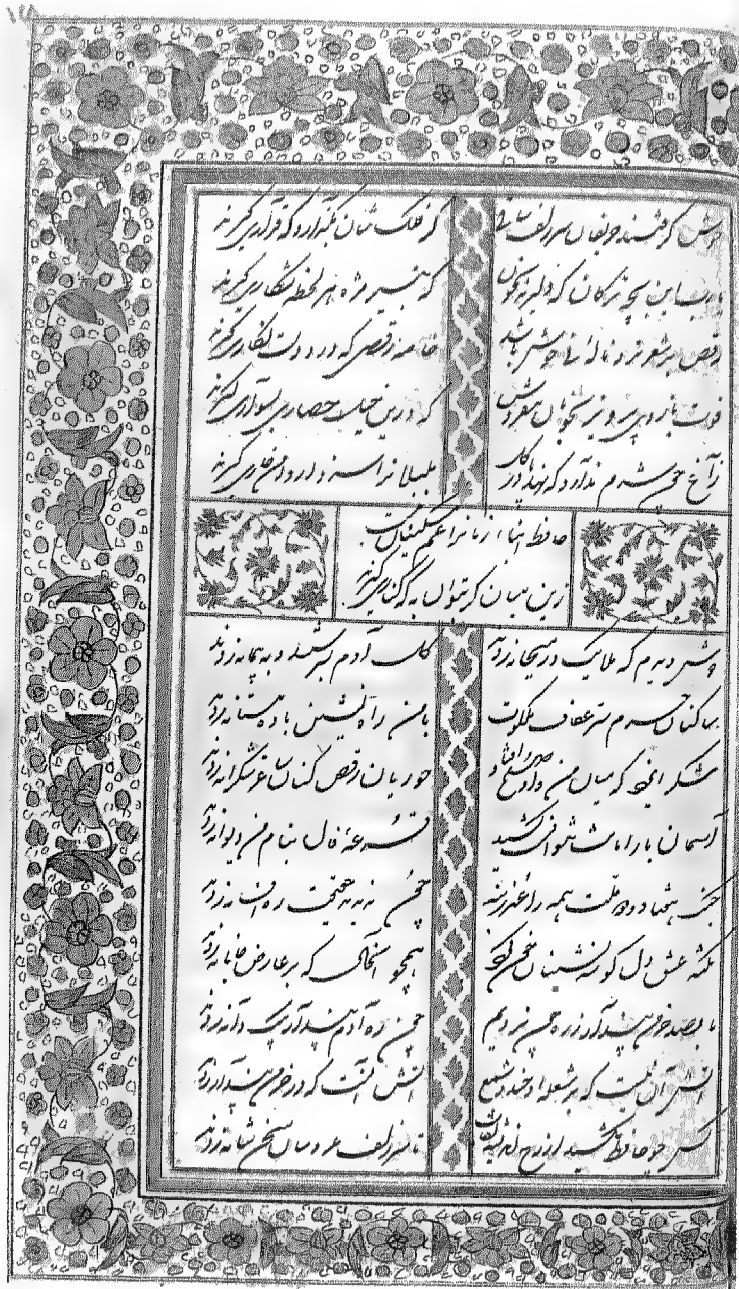 خوش گرفتند حریفان سر زلف ساقی گر فلک شان بگذارد که قراری گیرند
یا رب این بچه ترکان که دلیرند بخون که بتیر مژه هر لحظه شکاری گیرند
رقص بر شعر تر و ناله نی خوش باشد خاصه رقصی که درو دست نگاری گیرند
قوت بازوی پرهیز بخوبان مفروش که درین خیل حصاری بسواری گیرند
زاغ چون شرم ندارد که نهد پا در گل بلبلانرا سزد ار دامن خاری گیرند
حافظ ابنا زمانرا غم مسکینان نیست
زین میان گر بتوان به که کناری گیرند
دوش دیدم که ملایک در میخانه زدند گل آدم بسرشتند و به پیمانه زدند
ساکنان حرم ستر عفاف ملکوت با من راه نشین باده مستانه زدند
شکر ایزد که میان من و او صلح افتاد حوریان رقص کنان ساغر شکرانه زدند
آسمان بار امانت نتوانست کشید قرعهٔ فال بنام من دیوانه زدند
جنگ هفتاد و دو ملت همه را عذر بنه چون ندیدند حقیقت ره افسانه زدند
نکته عشق دل گوشه نشینان خون کرد همچو آنخال که بر عارض جانانه زدند
ما بصد خرمن پندار ز ره چون نرویم چون ره آدم بیدار بیک دانه زدند
آتش آن نیست که بر شعله او خندد شمع آتش آنست که در خرمن پروانه زدند
کس چو حافظ نکشید از رخ اندیشه نقاب تا سر زلف عروسان سخن شانه زدند